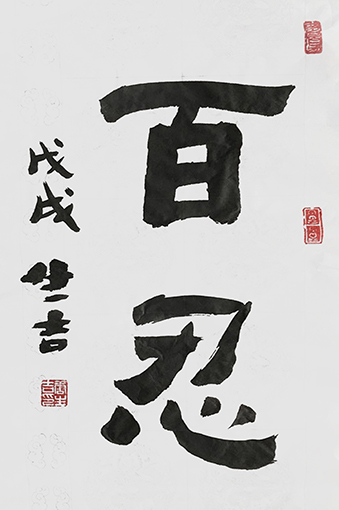 百忍
戊戌
世吉